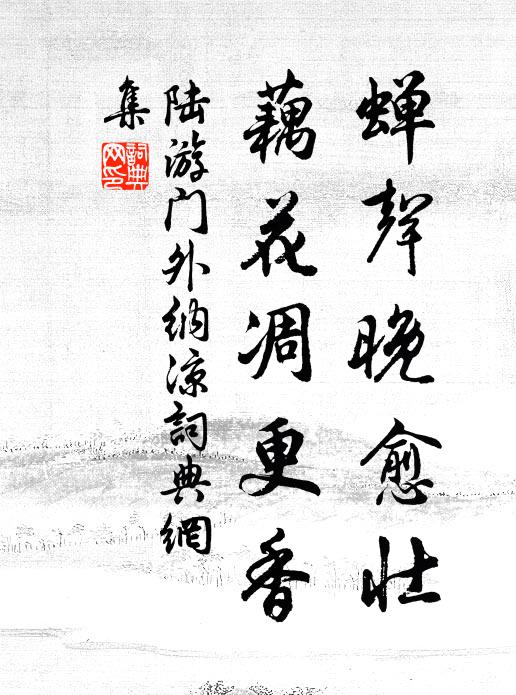 蝉聲晚愈壮
藕花凋更香
陆游门外纳凉詞典網
集
詞典网印